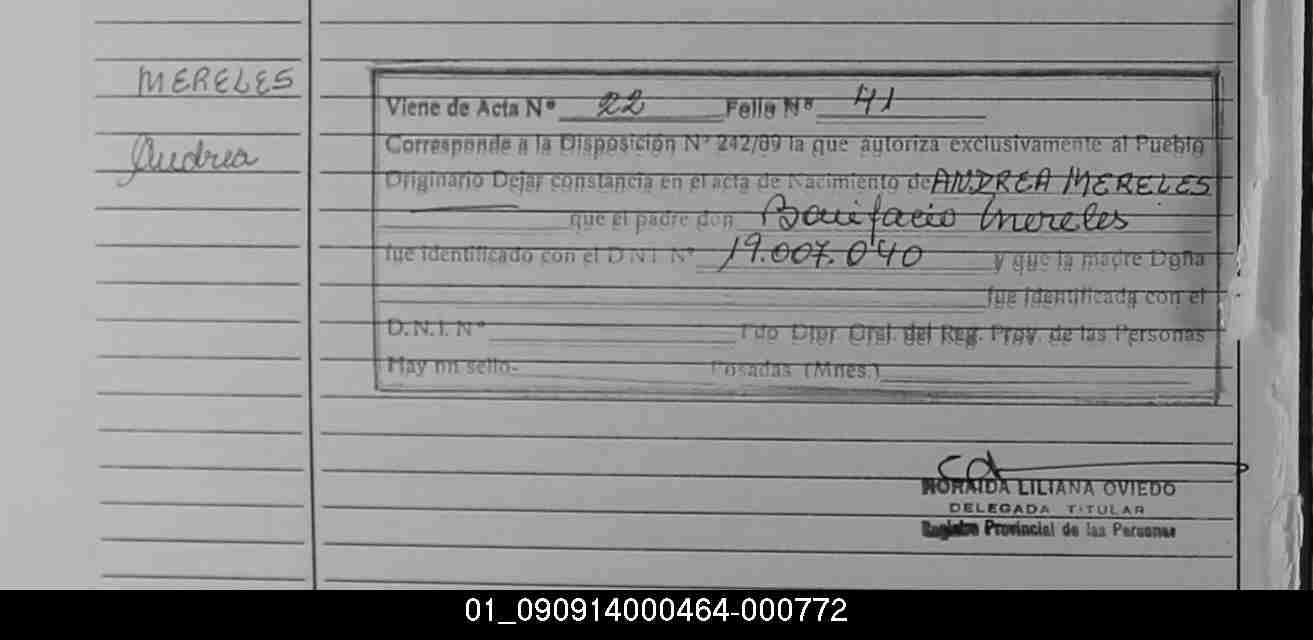 MERELES
Andrea
Viene de Acta Nº 22 Folio Nº 41
Corresponde a la Disposición Nº 242/09 la que autoriza exclusivamente al Pueblo
Originario Dejar constancia en el acta de Nacimiento de ANDREA MERELES
que el padre don Bonifacio Mereles
fue identificado con el D.N.I. Nº 19.007.040 y que la madre Doña
fue identificada con el
D.N.I. Nº Fdo Dtor Gral. del Reg. Prov. de las Personas
Hay un sello- Posadas (Mnes.)
NORAIDA LILIANA OVIEDO
DELEGADA TITULAR
Registro Provincial de las Personas
01_090914000464-000772